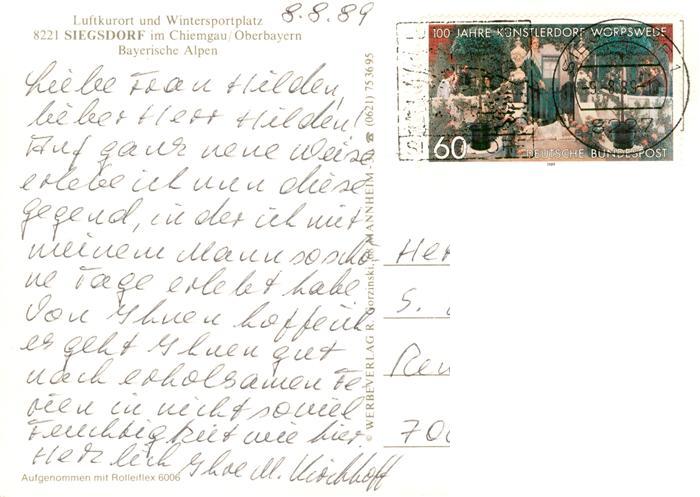 Luftkurort und Wintersportplatz
8221 SIEGSDORF im Chiemgau/Oberbayern
Bayerische Alpen
8.8.89
Liebe Frau Hilden,
lieber Herr Hilden!
Auf ganz neue Weise
erlebe ich nun diese
gegend, in der ich mit
meinem Mann so schö-
ne Tage erlebt habe
Von Ihnen hoffe ich
es geht Ihnen gut
nach erholsamen Fe-
rien in nicht soviel
Feuchtigkeit wie hier.
Herzlich Ihre M. Kirchhoff
Aufgenommen mit Rolleiflex 6006
© WERBEVERLAG R. MANNHEIM ☎ (0621) 75 36 95
100 JAHRE KÜNSTLERDORF WORPSWEDE
60 DEUTSCHE BUNDESPOST
1989
Her
S.
Ren
700